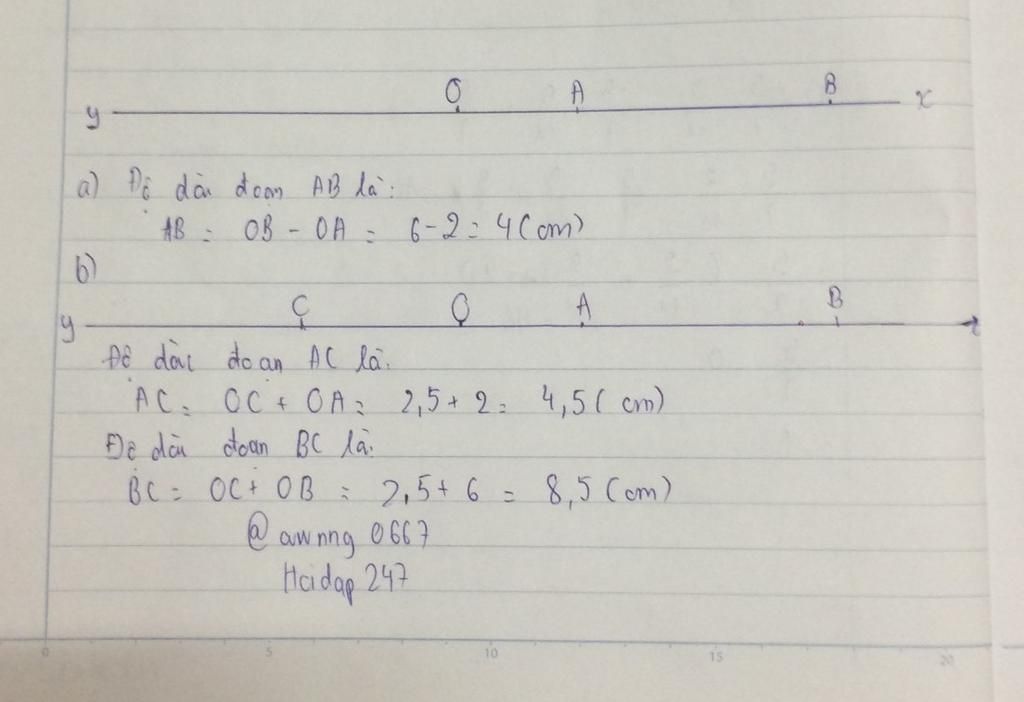 O A B
y x
a) Độ dài đoạn AB là:
AB = OB - OA = 6-2 = 4 (cm)
b)
C O A B
y x
Độ dài đoạn AC là:
AC = OC + OA = 2,5 + 2 = 4,5 (cm)
Độ dài đoạn BC là:
BC = OC + OB = 2,5 + 6 = 8,5 (cm)
@ awnng 0667
Hoidap 247
0 5 10 15 20